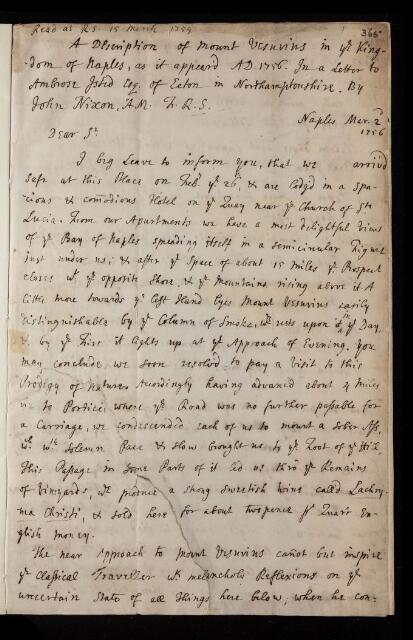 Read at R.S. 15 March 1759
366
A Description of Mount Vesuvius in ye King-
-dom of Naples, as it appear'd AD. 1756. In a Letter to
Ambrose Isted Esq. of Ecton in Northamptonshire. By
John Nixon, A.M. F.R.S.
Naples Mar. 2d
1756
Dear Sr.
I beg Leave to inform you, that we arriv'd
safe at this Place on Feb. ye 26, & are lodg'd in a Spa-
cious & comodious Hotel on ye Quay near ye Church of Sta
Lucia. From our Apartments we have a most delightful View
of ye Bay of Naples spreading itself in a semicircular Figure
just under us; & after ye Space of about 15 Miles ye Prospect
closes wth ye opposite Shore, & ye Mountains rising above it. A
little more towards ye left Hand lyes Mount Vesuvius easily
distinguishable by ye Column of Smoke, wch rests upon it in ye Day,
& by ye Fire it lights up at ye Approach of Evening. You
may conclude we soon resolv'd to pay a Visit to this
Prodigy of Nature. Accordingly having advanc'd about 4 Miles
viz to Portici, where ye Road was no further passable for
a Carriage, we condescended each of us to mount a sober Ass,
wch wth Solemn Pace & slow brought us to ye Foot of ye Hill.
This Passage in some Parts of it led us thro' ye Remains
of Vineyards, wch produce a strong sweetish Wine called Lachry-
ma Christi, & sold here for about twopence pr Quart En-
glish money.
The near Approach to Mount Vesuvius canot but inspire
ye Classical Traveller wth melancholy Reflexions on ye
uncertain State of all Things here below; when he con-